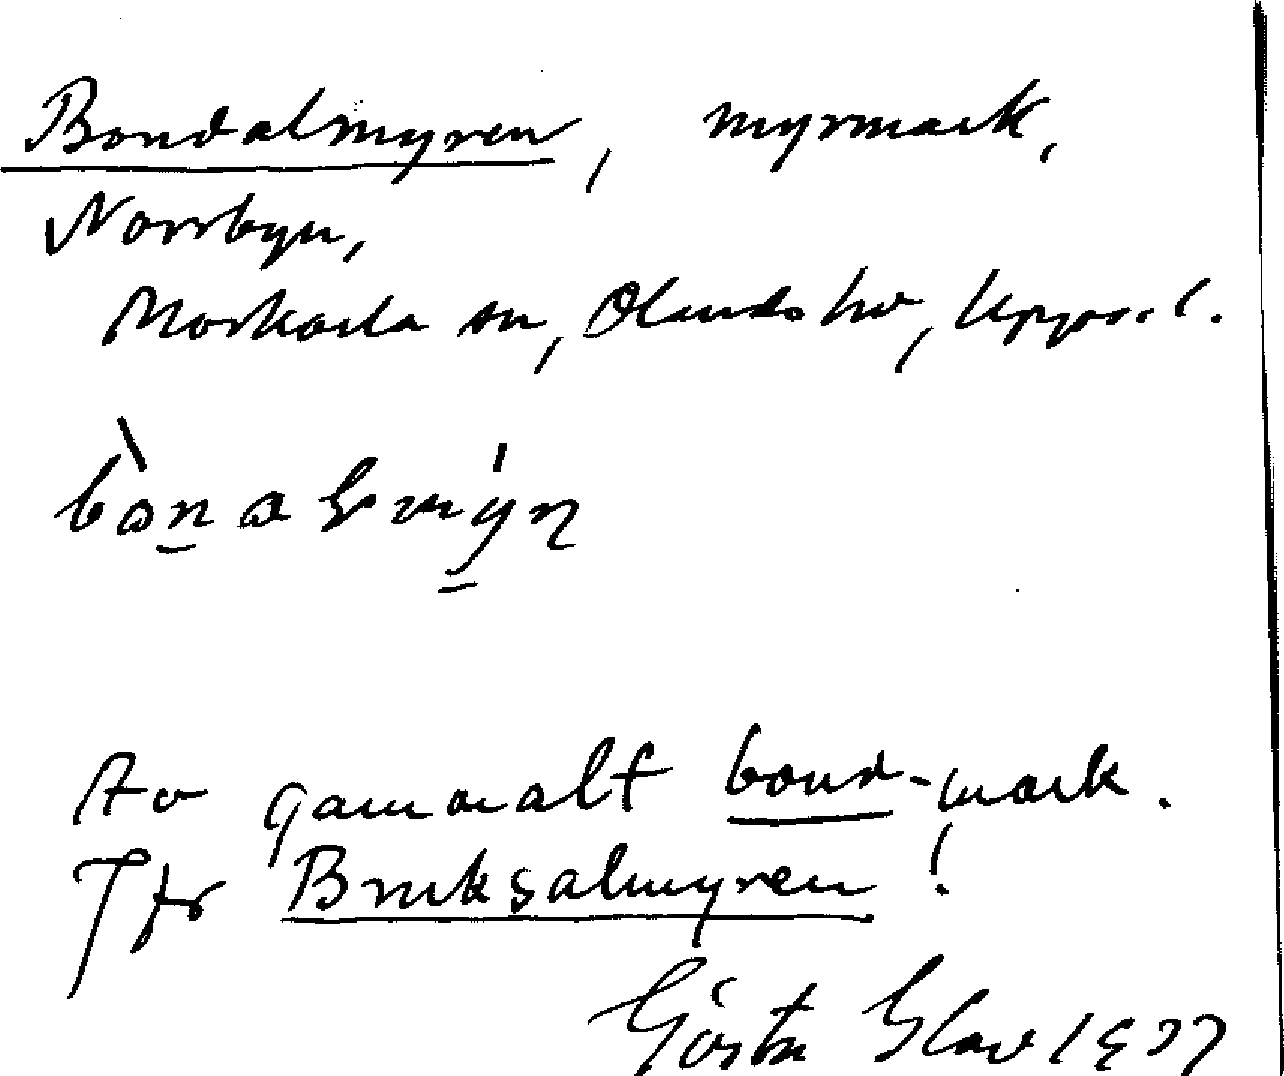 Bondalmyren, myrmark,
Norrbyn,
Morkarla sn, Olands hd, Upps. l.
Av gammalt bond-mark.
Jfr Bruksalmyren!
Gösta 1937